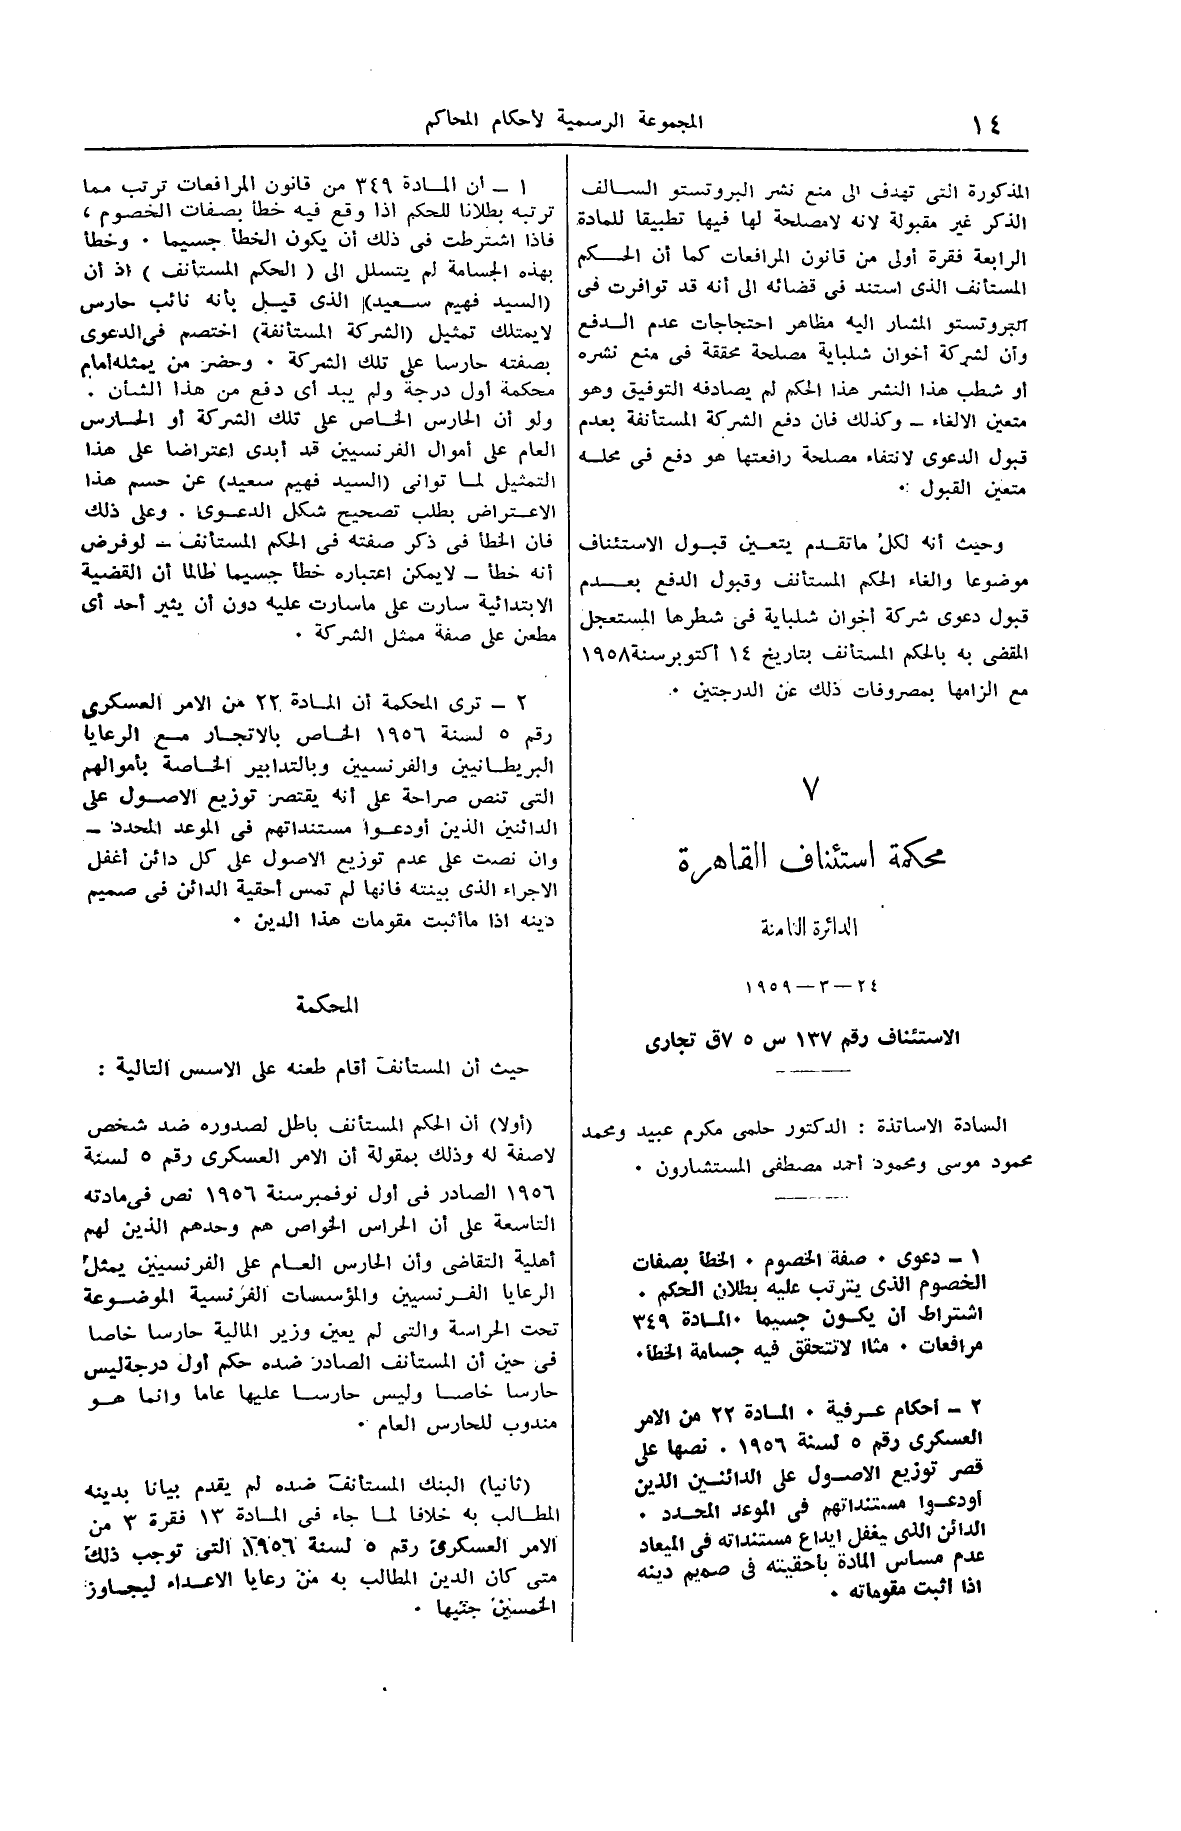 ١٤
المجموعة الرسمية لأحكام المحاكم
المذكورة التى تهدف الى منع نشر البروتستو السالف
الذكر غير مقبولة لانه لامصلحة لها فيها تطبيقا للمادة
الرابعة فقرة أولى من قانون المرافعات كما أن الحكم
المستأنف الذى استند فى قضائه الى أنه قد توافرت فى
البروتستو المشار اليه مظاهر احتجاجات عدم الدفع
وأن لشركة أخوان شلباية مصلحة محققة فى منع نشره
أو شطب هذا النشر هذا الحكم لم يصادفه التوفيق وهو
متعين الالغاء – وكذلك فان دفع الشركة المستأنفة بعدم
قبول الدعوى لانتفاء مصلحة رافعتها هو دفع فى محله
متعين القبول .
وحيث أنه لكل ماتقدم يتعين قبول الاستئناف
موضوعا والغاء الحكم المستأنف وقبول الدفع بعدم
قبول دعوى شركة أخوان شلباية فى شطرها المستعجل
المقضى به بالحكم المستأنف بتاريخ ١٤ أكتوبر سنة ١٩٥٨
مع الزامها بمصروفات ذلك عن الدرجتين .
٧
محكمة استئناف القاهرة
الدائرة الثامنة
٢٤ – ٣ – ١٩٥٩
الاستئناف رقم ١٣٧ س ٧٥ق تجارى
السادة الاساتذة : الدكتور حلمى مكرم عبيد ومحمد
محمود موسى ومحمود أحمد مصطفى المستشارون .
١ – دعوى . صفة الخصوم . الخطأ بصفات
الخصوم الذى يترتب عليه بطلان الحكم .
اشتراط ان يكون جسيما . المادة ٣٤٩
مرافعات . مثال لاتتحقق فيه جسامة الخطأ.
٢ – أحكام عرفية . المادة ٢٢ من الامر
العسكرى رقم ٥ لسنة ١٩٥٦ . نصها على
قصر توزيع الاصول على الدائنين الذين
أودعوا مستنداتهم فى الموعد المحدد .
الدائن الذى يغفل ايداع مستنداته فى الميعاد
عدم مساس المادة بأحقيته فى صميم دينه
اذا اثبت مقوماته .
١ – أن المادة ٣٤٩ من قانون المرافعات ترتب مما
ترتبه بطلانا للحكم اذا وقع فيه خطأ بصفات الخصوم ،
فاذا اشترطت فى ذلك أن يكون الخطأ جسيما . وخطأ
بهذه الجسامة لم يتسلل الى ( الحكم المستأنف ) اذ أن
(السيد فهيم سعيد) الذى قيل بأنه نائب حارس
لايمتلك تمثيل (الشركة المستأنفة) اختصم فى الدعوى
بصفته حارسا على تلك الشركة . وحضر من يمثله أمام
محكمة أول درجة ولم يبد أى دفع من هذا الشأن .
ولو أن الحارس الخاص على تلك الشركة أو الحارس
العام على أموال الفرنسيين قد أبدى اعتراضا على هذا
التمثيل لما توانى (السيد فهيم سعيد) عن حسم هذا
الاعتراض بطلب تصحيح شكل الدعوى . وعلى ذلك
فان الخطأ فى ذكر صفته فى الحكم المستأنف – لوفرض
أنه خطأ – لايمكن اعتباره خطأ جسيما طالما أن القضية
الابتدائية سارت على ماسارت عليه دون أن يثير أحد أى
مطعن على صفة ممثل الشركة .
٢ – ترى المحكمة أن المادة ٢٢ من الامر العسكرى
رقم ٥ لسنة ١٩٥٦ الخاص بالاتجار مع الرعايا
البريطانيين والفرنسيين وبالتدابير الخاصة بأموالهم
التى تنص صراحة على أنه يقتصر توزيع الاصول على
الدائنين الذين أودعوا مستنداتهم فى الموعد المحدد –
وان نصت على عدم توزيع الاصول على كل دائن أغفل
الاجراء الذى بينته فانها لم تمس أحقية الدائن فى صميم
دينه اذا ماأثبت مقومات هذا الدين .
المحكمة
حيث أن المستأنف أقام طعنه على الاسس التالية :
(أولا) أن الحكم المستأنف باطل لصدوره ضد شخص
لاصفة له وذلك بمقولة أن الامر العسكرى رقم ٥ لسنة
١٩٥٦ الصادر فى أول نوفمبر سنة ١٩٥٦ نص فى مادته
التاسعة على أن الحراس الخواص هم وحدهم الذين لهم
أهلية التقاضى وأن الحارس العام على الفرنسيين يمثل
الرعايا الفرنسيين والمؤسسات الفرنسية الموضوعة
تحت الحراسة والتى لم يعين وزير المالية حارسا خاصا
فى حين أن المستأنف الصادر ضده حكم أول درجة ليس
حارسا خاصا وليس حارسا عليها عاما وانما هو
مندوب للحارس العام .
(ثانيا) البنك المستأنف ضده لم يقدم بيانا بدينه
المطالب به خلافا لما جاء فى المادة ١٣ فقرة ٣ من
الامر العسكرى رقم ٥ لسنة ١٩٥٦ التى توجب ذلك
متى كان الدين المطالب به من رعايا الاعداء ليجاوز
الخمسين جنيها .